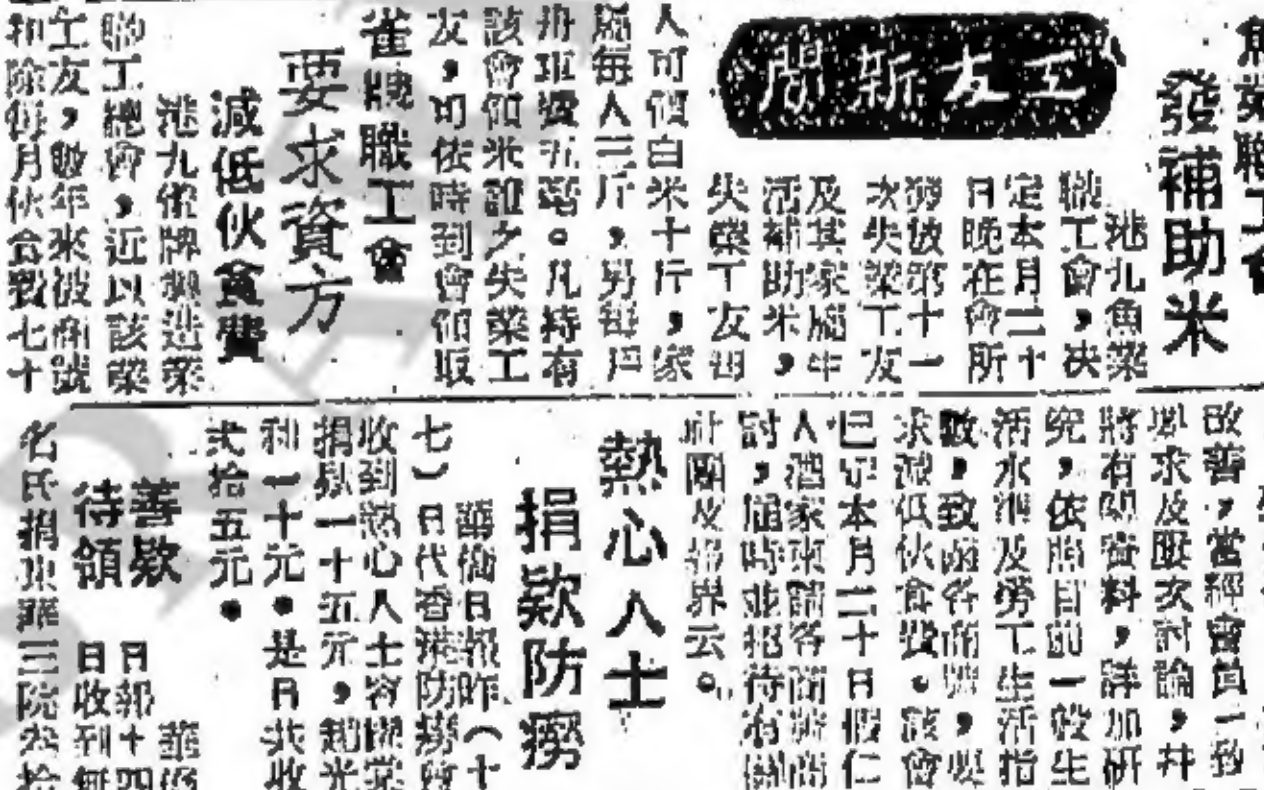 工友新聞
魚業職工會
發補助米
港九魚業
職工會，決
定本月二十
日晚在會所
發放第十一
次失業工友
及其家屬生
活補助米，
失業工友每
人可領白米十斤，家
屬每人三斤，另每戶
舟車費五角。凡持有
該會領米證之失業工
友，可依時到會領取
雀牌職工會
要求資方
減低伙食費
港九雀牌製造業
職工總會，近以該業
工友，數年來被商號
扣除每月伙食費七十
改善，當經會員一致
要求及歷次討論，并
將有關資料，詳加研
究，依照目前一般生
活水準及勞工生活指
數，致函各商號，要
求減低伙食費。該會
已定本月二十日假仁
人酒家柬請各商號商
討，屆時並招待有關
社團及各界云。
熱心人士
捐欵防癆
華僑日報昨（十
七）日代香港防癆會
收到熱心人士
捐欵一十五元，趙光
利一十元。是日共收
弍拾五元。
善欵
待領
華僑
日報十四
日收到無
名氏捐東華三院